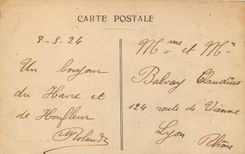 CARTE POSTALE
8-8-24
Un bonjour
du Havre et
de Honfleur
Mme et Mr
Balvay Claudius
124 route de Vienne
Lyon
Rhône